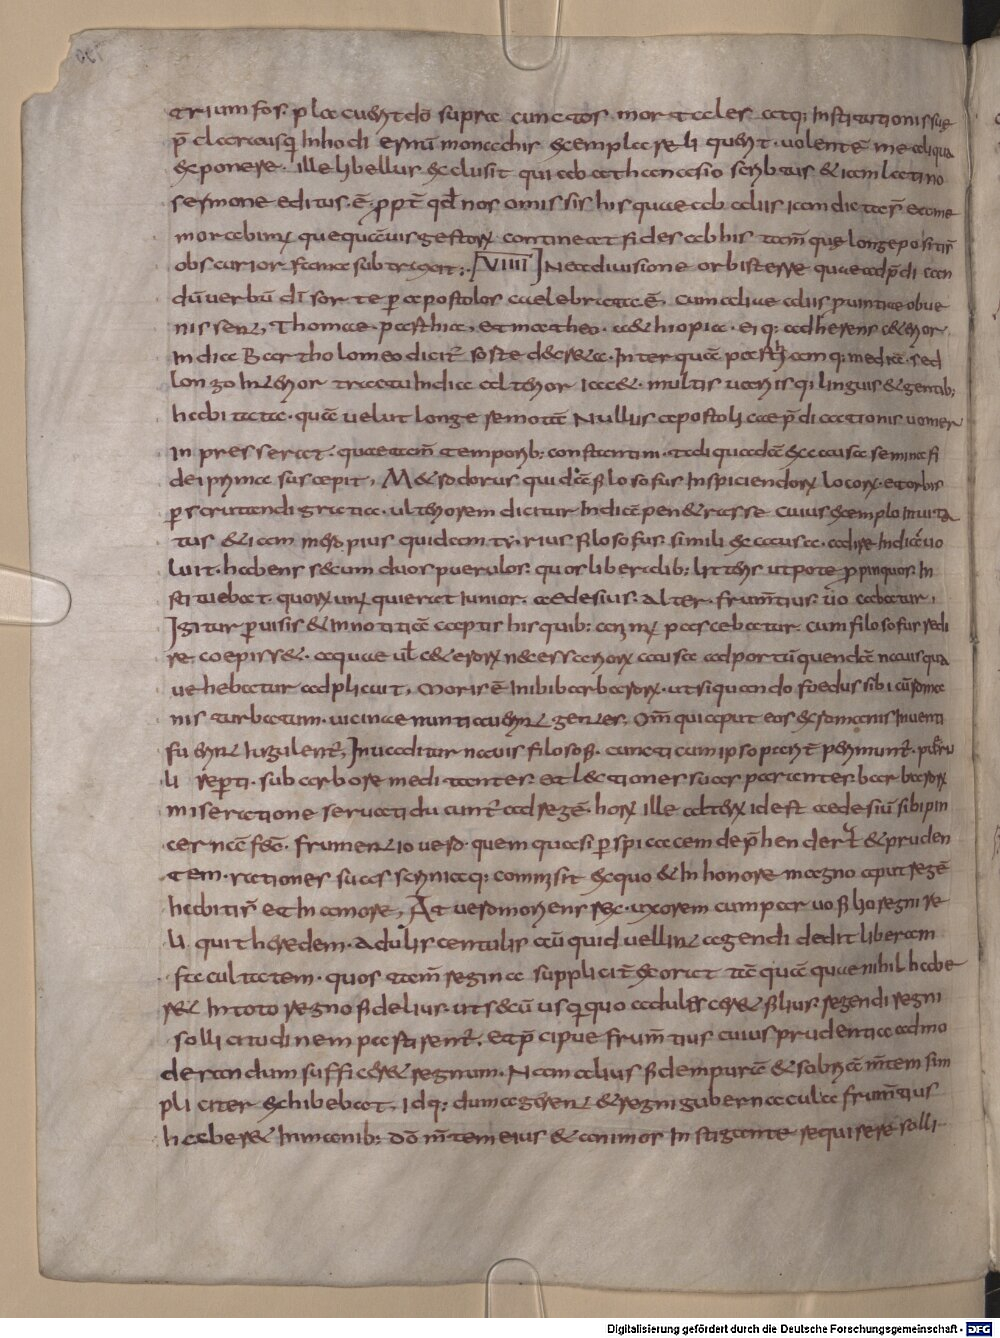 trium fos. placuerit dō supra cunctos mortales atq; institutionis suę
p̄ clarāusq; in hodiernū monachis exemplare liquerit. uolentē me aliqua
exponere. ille libellus exclusit qui ab athanasio scribtus & iam latino
sermone editus. ē. ꝓpt̄ qd̄ nos omissis his quae ab aliis iam dicta s̄t ea me
morabimꝝ quęquāuis gestoꝝ contineat fides ab his tam̄ quę longe positis s̄t
obscurior fama subtraxit;. VIIII In ea diuisione orbis terre quae ad p̄di can
dū uerbū dī sorte ꝑ apostolos caelebrata. ē. cum aliae aliis prouintiae obue
nissen&, Thomae. parthia, et matheo. aethiopia. eiq; adherens citerior
india Bartholomeo dicit̄ sorte decreta. Inter quā parthiamq; media. sed
longo interior tractu India ulterior iac&. multis uariisq; linguis & gentib;
habitata. quā uelut longe remotā Nullus apostolicae p̄dicationis uomer
inpresserat. quae tam̄ temporib; constantini. tali quadā ex causa semina fi
dei prima suscepit, M&rodorus quidā filosofus Inspiciendoꝝ locoꝝ et orbis
ꝑscrutandi gratia. ulteriorem dicitur Indiā penetrasse cuius exemplo inuita
tus &iam meropius quidam tyrius filosofus simili ex causa. adire Indiā uo
luit. habens secum duos puerulos. quos liberalib; litteris utpote ꝓpinquos. In
stituebat. quoꝝ unꝰ qui erat iunior. aedesius. alter. frumtius. uocabatur.
Igitur ꝑuisis & in notitiā captis his quib; animꝰ pascebatur. cum filosofus redi
re coepiss&. aquae ut̄ c&eroꝝ necessarioꝝ causa ad portū quendā nauis qua
uehebatur adplicuit, moris ē inibi barbaroꝝ. ut siquando foedus sibi cū roma
nis turbatum. uicinae nuntiauerint gentes. Om̄ qui aput eos ex romanis inuenti
fuerint iugulent̄, Inuaditur nauis filosofi. cuncti cum ipso parit̄ perimunt̄. pueru
li reperti. sub arbore meditantes et lectiones suas parantes. barbaroꝝ
miseratione seruati ducunt̄ ad regē. hoꝝ ille alterꝝ idest aedesiū sibi pin
cernā fec̄. frumentio uero. quem quasi ꝑspicacem dep̄henderat & pruden
tem. rationes suas scriniaq; commisit ex quo & in honore magno aput regē
habiti s̄t et in amore, At uero moriens rex. uxorem cum paruo filio regni re
li quit heredem. adulis centulis eū quid uellint agendi dedit liberam
facultatem. quos tam̄ regina suppliciter exorat tā quā quae nihil habe
r& In toto regno fidelius. ut secū usq; quo adulesceret filius. regendi regni
sollicitudinem partirent̄. et p̄cipue frum̄tius cuius prudentia ad mo
derandum sufficer& regnum. Nam alius fidem purā & sobriā m̄tem sim
pliciter exhibebat. idq; dum agerent & regni gubernacula frum̄tius
haber& In manib; dō m̄tem eius & animos Instigante requirere solli